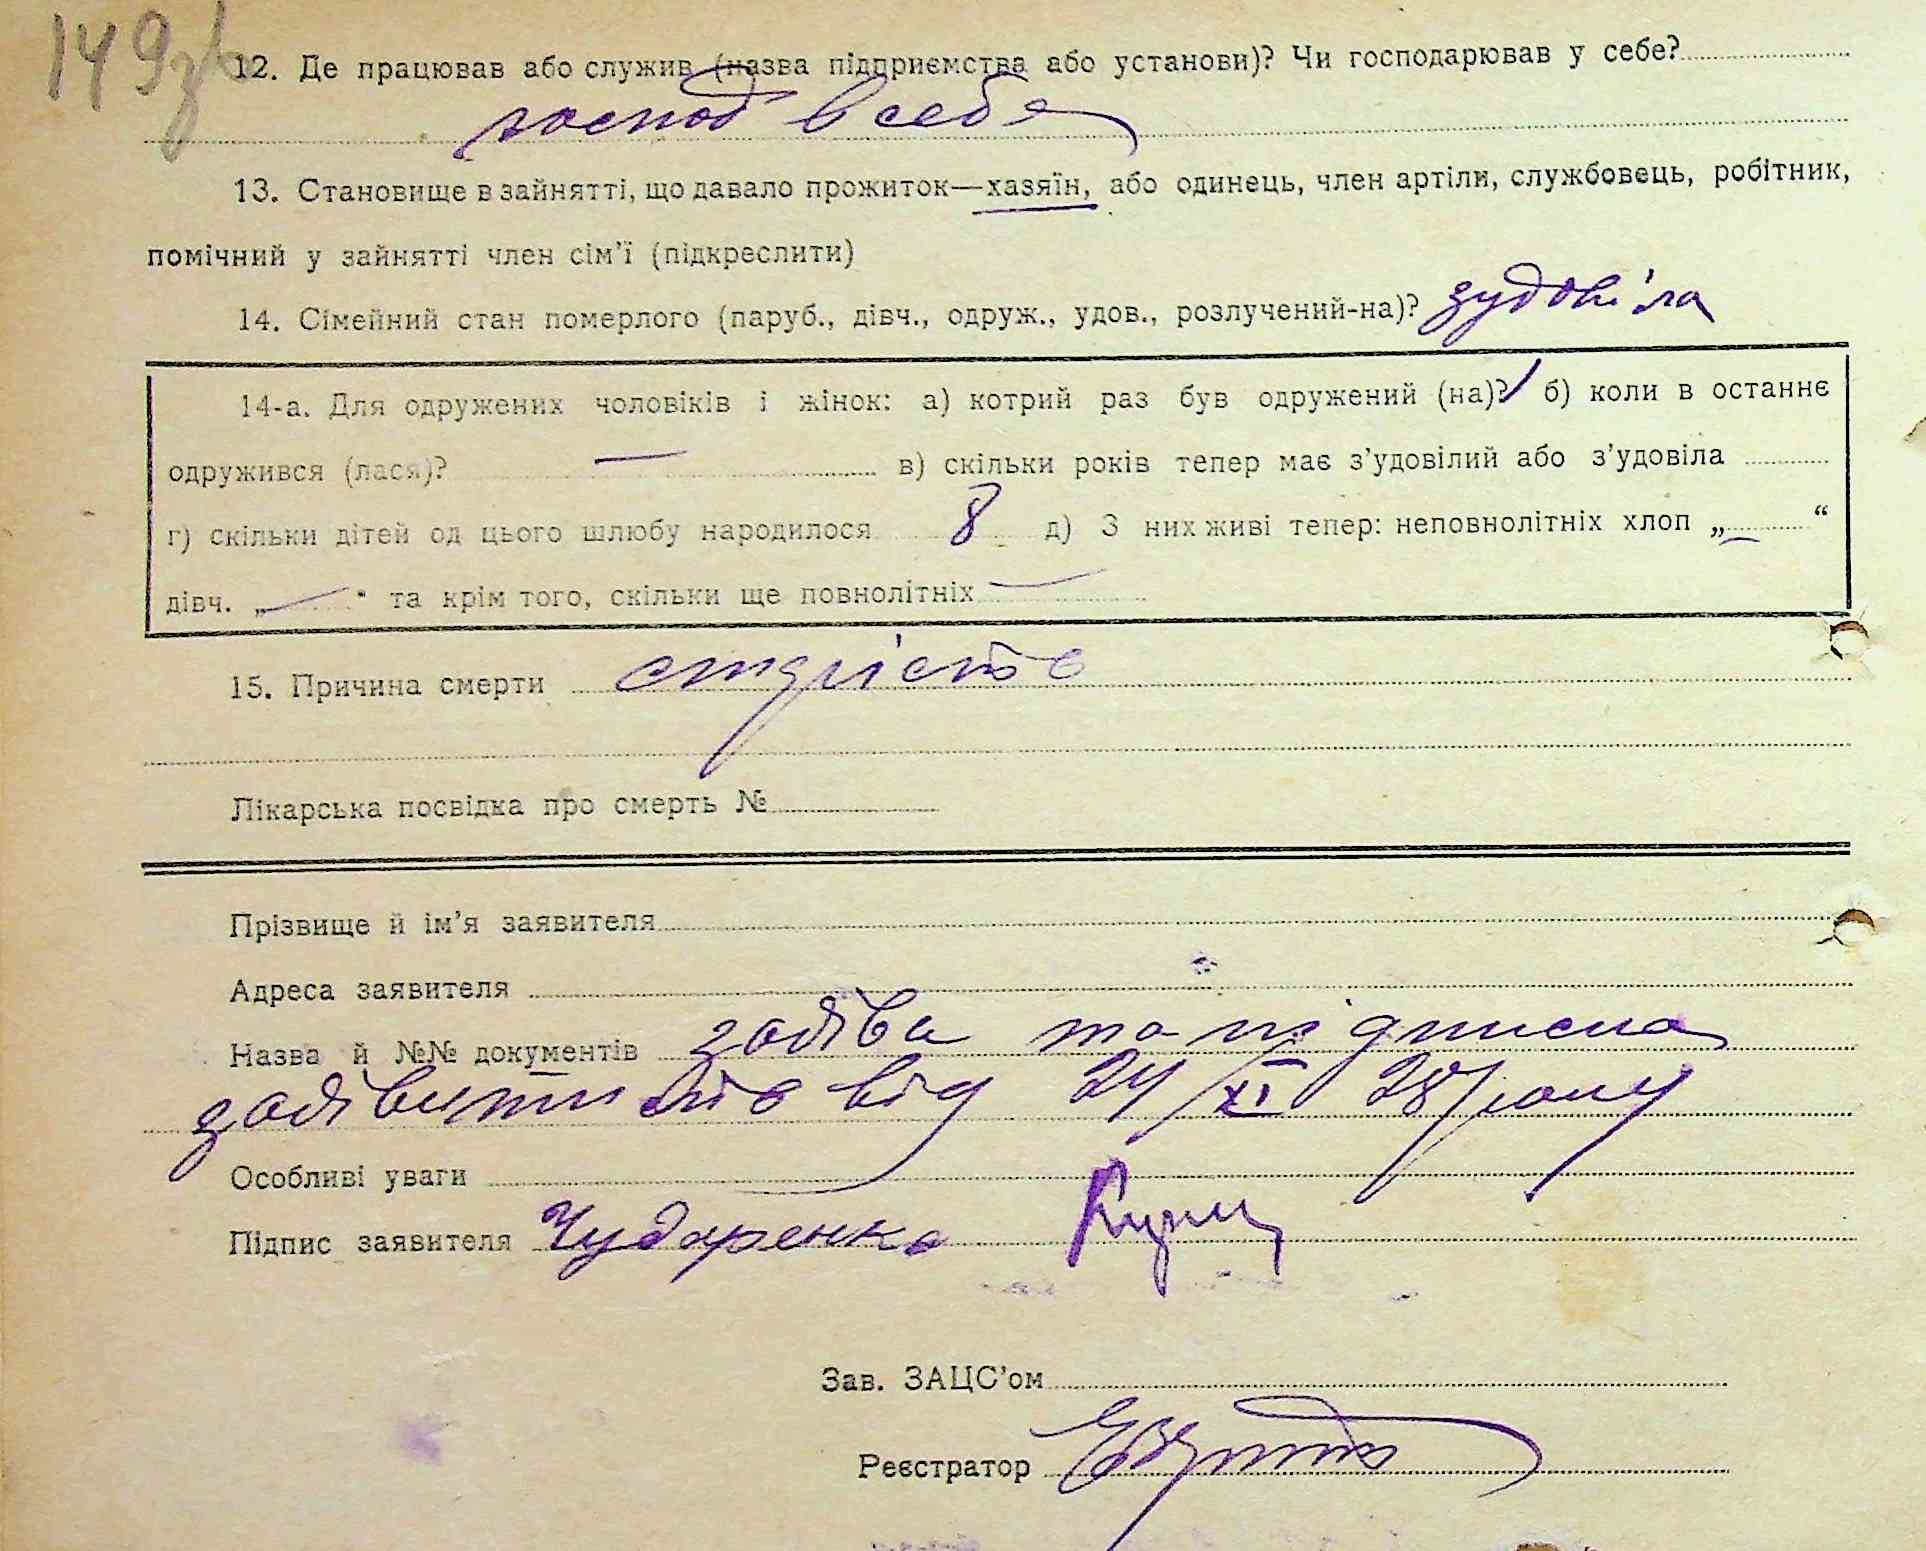 149зв
12. Де працював або служив (назва підприємства або установи)? Чи господарював у себе?
господ в себе
13. Становище в зайнятті, що давало прожиток—хазяїн, або одинець, член артіли, службовець, робітник,
помічний у зайнятті член сім'ї (підкреслити)
14. Сімейний стан померлого (паруб., дівч., одруж., удов., розлучений-на)? зудові'ла
14-а. Для одружених чоловіків і жінок: а) котрий раз був одружений (на)? б) коли в останнє
одружився (лася)? — в) скільки років тепер має з'удовілий або з'удовіла
г) скільки дітей од цього шлюбу народилося 8 д) З них живі тепер: неповнолітніх хлоп „—“
дівч. „—“ та крім того, скільки ще повнолітніх —
15. Причина смерти старість
Лікарська посвідка про смерть №
Прізвище й ім'я заявителя
Адреса заявителя
Назва й №№ документів заява та підписка
від 24/XI 28 року
Особливі уваги
Підпис заявителя Чударенко
Зав. ЗАЦС'ом
Реєстратор